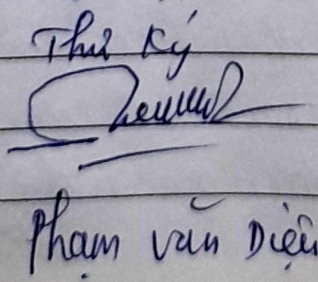 Thư ký
Phạm Văn Diệu